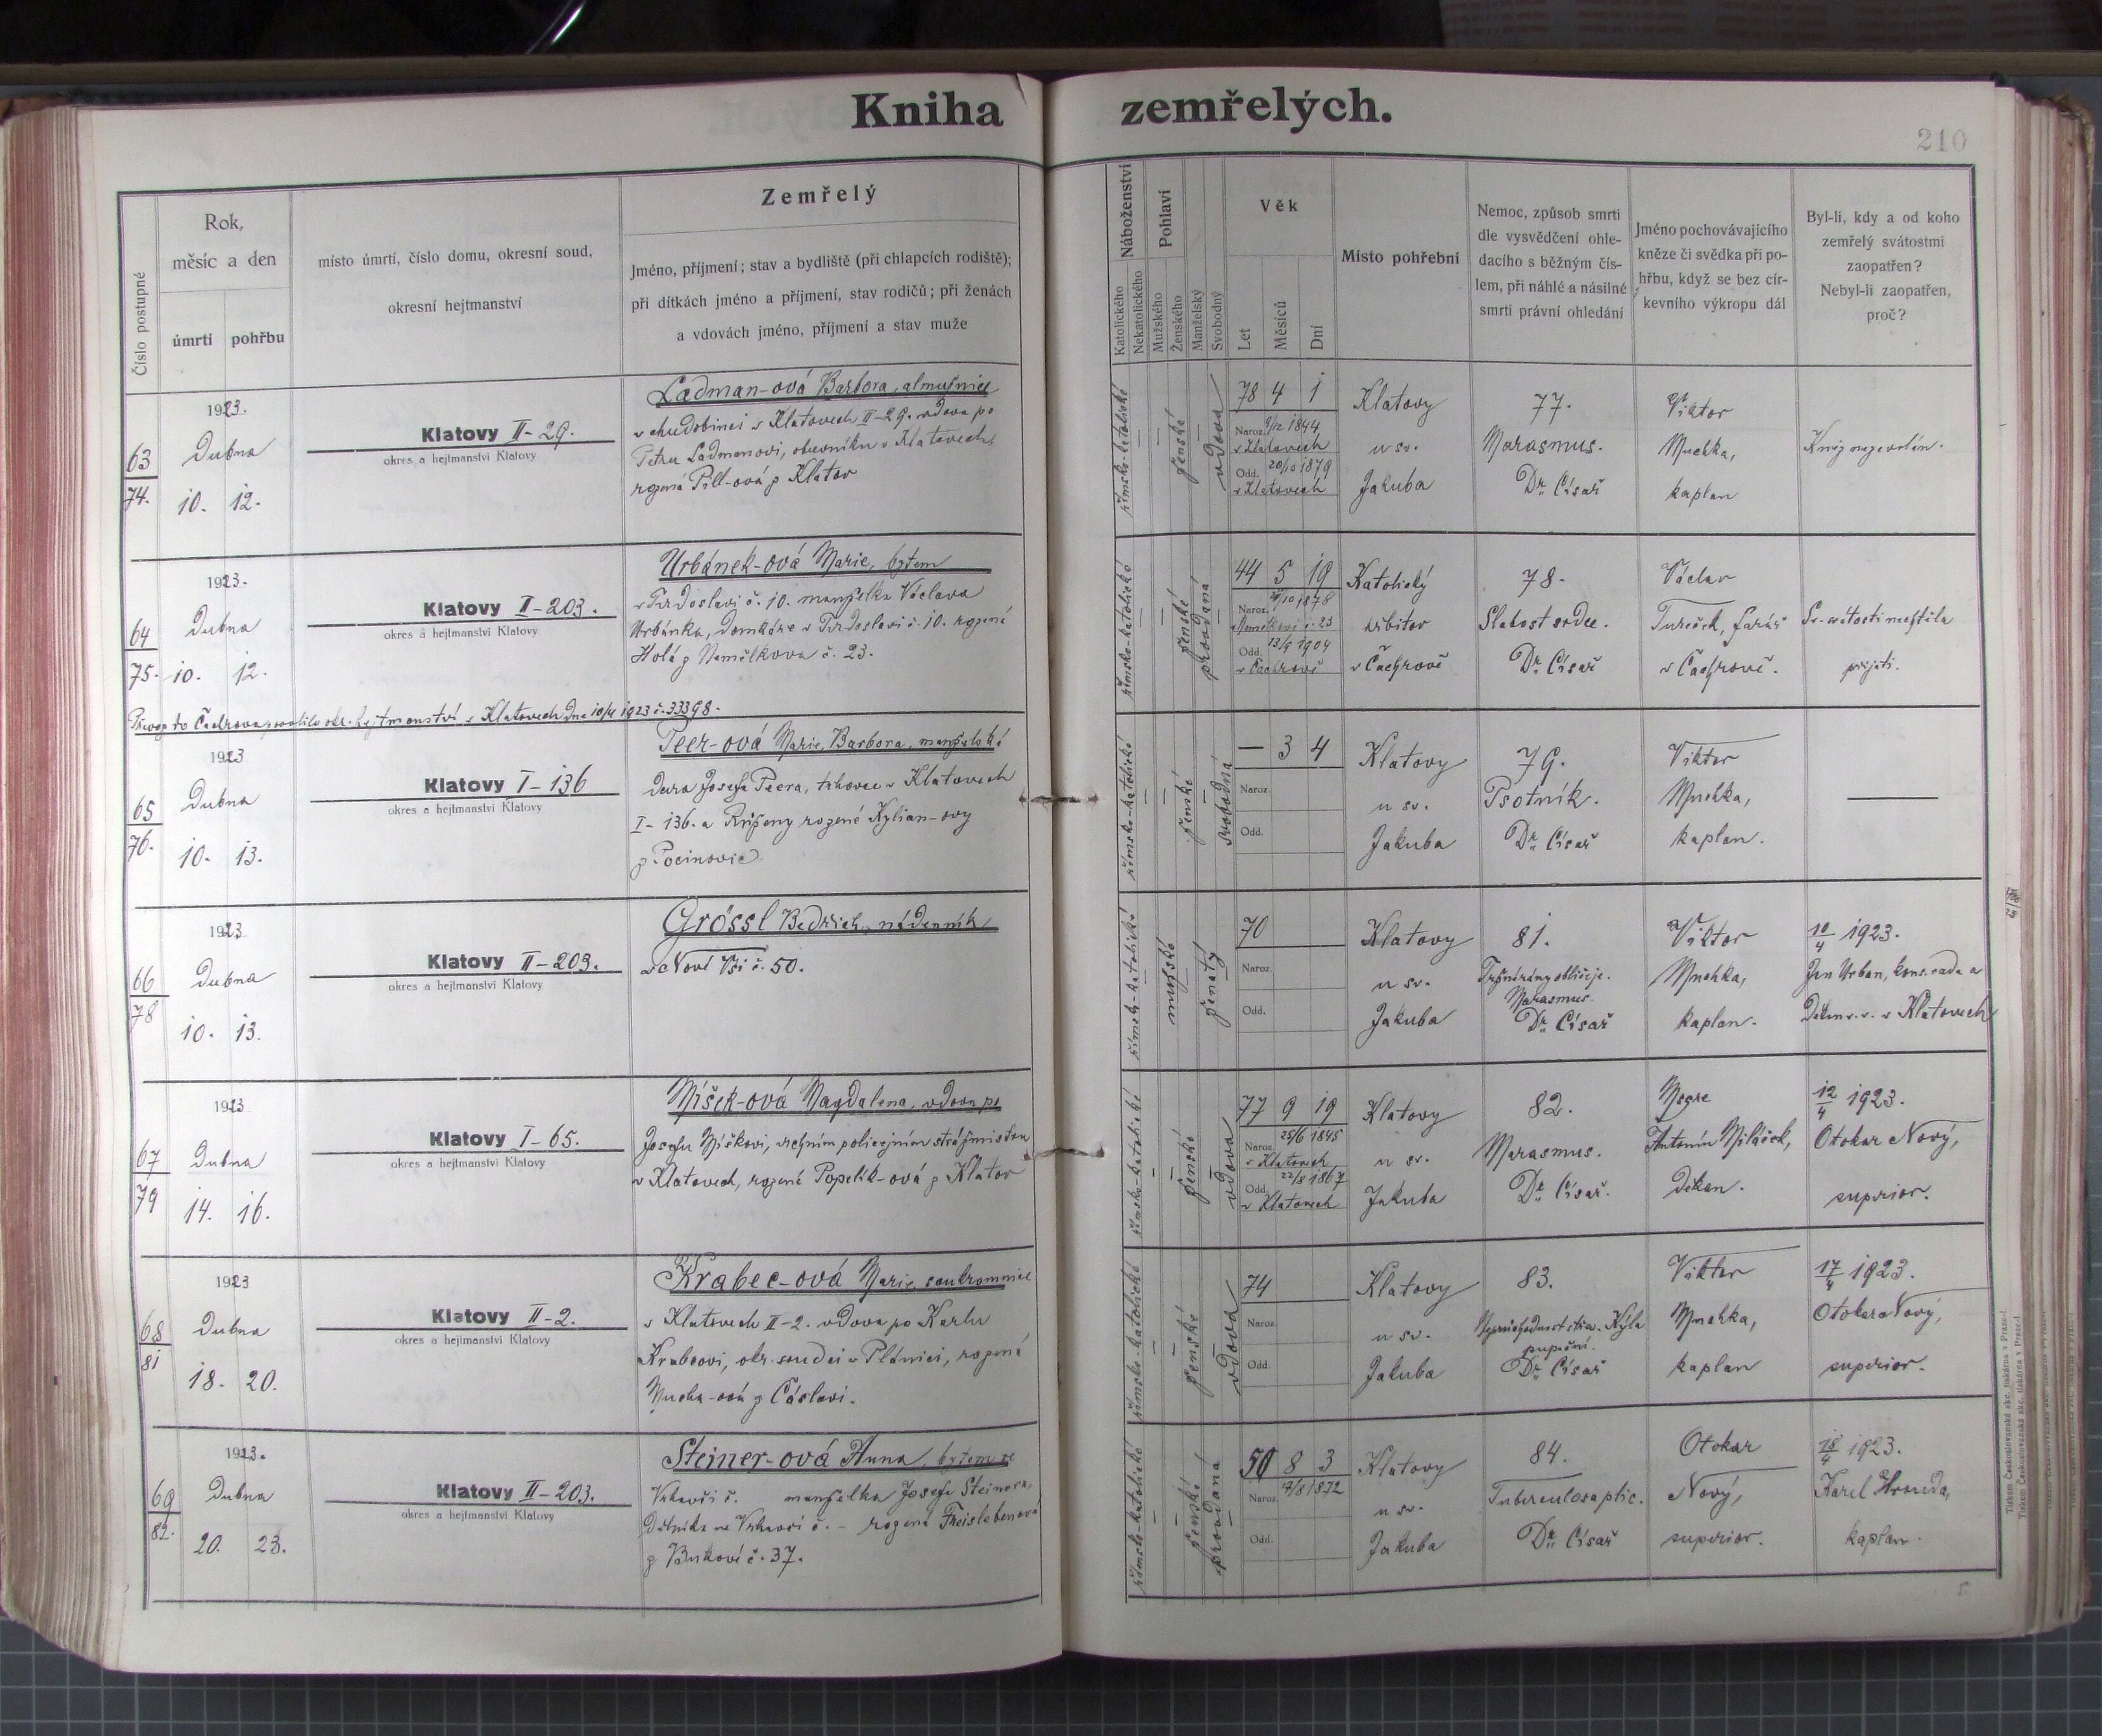 Kniha zemřelých.
210
Číslo postupné
Rok,
měsíc a den
úmrtí pohřbu
místo úmrtí, číslo domu, okresní soud,
okresní hejtmanství
Zemřelý
Jméno, příjmení; stav a bydliště (při chlapcích rodiště);
při dítkách jméno a příjmení, stav rodičů; při ženách
a vdovách jméno, příjmení a stav muže
Náboženství
Katolického
Nekatolického
Pohlaví
Mužského
Ženského
Manželský
Svobodný
Věk
Let
Měsíců
Dní
Místo pohřební
Nemoc, způsob smrti
dle vysvědčení ohle-
dacího s běžným čís-
lem, při náhlé a násilné
smrti právní ohledání
Jméno pochovávajícího
kněze či svědka při po-
hřbu, když se bez cír-
kevního výkropu dál
Byl-li, kdy a od koho
zemřelý svátostmi
zaopatřen?
Nebyl-li zaopatřen,
proč?
63
74.
1923.
Dubna
10. 12.
Klatovy II-29.
okres a hejtmanství Klatovy
Ladman-ová Barbora, almužnice
v chudobinci v Klatovech II-29. vdova po
Petru Ladmanovi, obuvníku v Klatovech,
rozená Pill-ová z Klatov
římsko-katolické
ženské
vdova
78 4 1
Naroz. 9/12 1844
v Klatovech
Odd. 20/10 1879
v Klatovech
Klatovy
u sv.
Jakuba
77.
Marasmus.
Dr. Císař
Viktor
Muchka,
kaplan
Kněz nezavolán.
64
75.
1923.
Dubna
10. 12.
Klatovy II-203.
okres a hejtmanství Klatovy
Urbánek-ová Marie, bytem
v Tvrdoslavi č. 10. manželka Václava
Urbánka, domkáře v Tvrdoslavi č. 10. rozená
Holá z Němčlkova č. 23.
Převoz do Čachrova povolilo okr. hejtmanství v Klatovech dne 10/4 1923 č. 33398.
římsko-katolické
ženské
provdaná
44 5 19
Naroz. 1878
č. 23
Odd. 13/9 1904
v Čachrově
Katolický
hřbitov
v Čachrově
78.
Slabost srdce.
Dr. Císař
Václav
Tureček, farář
v Čachrově.
Sv. svátosti nechtěla
přijati.
65
76.
1923
Dubna
10. 13.
Klatovy I-136
okres a hejtmanství Klatovy
Peer-ová Marie, Barbora, manželská
dcera Josefa Peera, trhovce v Klatovech
I-136. a Růženy rozené Kylian-ovy
z Pocinovic
římsko-katolické
ženské
svobodná
— 3 4
Naroz.
Odd.
Klatovy
u sv.
Jakuba
79.
Psotník.
Dr. Císař
Viktor
Muchka,
kaplan.
—
66
78
1923
Dubna
10. 13.
Klatovy II-203.
okres a hejtmanství Klatovy
Grössl Bedřich, nádenník
v Nové Vsi č. 50.
římsko-katolické
mužské
ženatý
70
Naroz.
Odd.
Klatovy
u sv.
Jakuba
81.
Tržné rány obličeje.
Marasmus.
Dr. Císař
Viktor
Muchka,
kaplan.
10/4 1923.
Jan Urban, kons. rada a
děkan v. v. v Klatovech
67
79
1923
Dubna
14. 16.
Klatovy I-65.
okres a hejtmanství Klatovy
Míšek-ová Magdalena, vdova po
Josefu Míškovi, vrchním policejním strážmistru
v Klatovech, rozená Popelík-ová z Klatov
římsko-katolické
ženské
vdova
77 9 19
Naroz. 25/6 1845
v Klatovech
Odd. 22/8 1867
v Klatovech
Klatovy
u sv.
Jakuba
82.
Marasmus.
Dr. Císař.
Msgre
Antonín Miláček,
děkan.
12/4 1923.
Otokar Nový,
superior.
68
81
1923
Dubna
18. 20.
Klatovy II-2.
okres a hejtmanství Klatovy
Krabec-ová Marie, soukromnice
v Klatovech II-2. vdova po Karlu
Krabcovi, okr. soudci v Plánici, rozená
Mucha-ová z Čáslavi.
římsko-katolické
ženské
vdova
74
Naroz.
Odd.
Klatovy
u sv.
Jakuba
83.
Neprůchodnost střev. Kýla
pupeční.
Dr. Císař
Viktor
Muchka,
kaplan
17/4 1923.
Otokar Nový,
superior.
69
82.
1923.
Dubna
20. 23.
Klatovy II-203.
okres a hejtmanství Klatovy
Steiner-ová Anna, bytem ve
Vrhavči č. manželka Josefa Steinera,
dělníka ve Vrhavči č. - rozená Freislebenová
č. 37.
římsko-katolické
ženské
provdaná
50 8 3
Naroz. 1872
Odd.
Klatovy
u sv.
Jakuba
84.
Tuberculosa
Dr. Císař
Otokar
Nový,
superior.
18/4 1923.
Karel Hrouda,
kaplan.
Tiskem Českoslovanská akc. tiskárna v Praze-I.
Tiskem Českoslovanská akc. tiskárna v Praze-I.